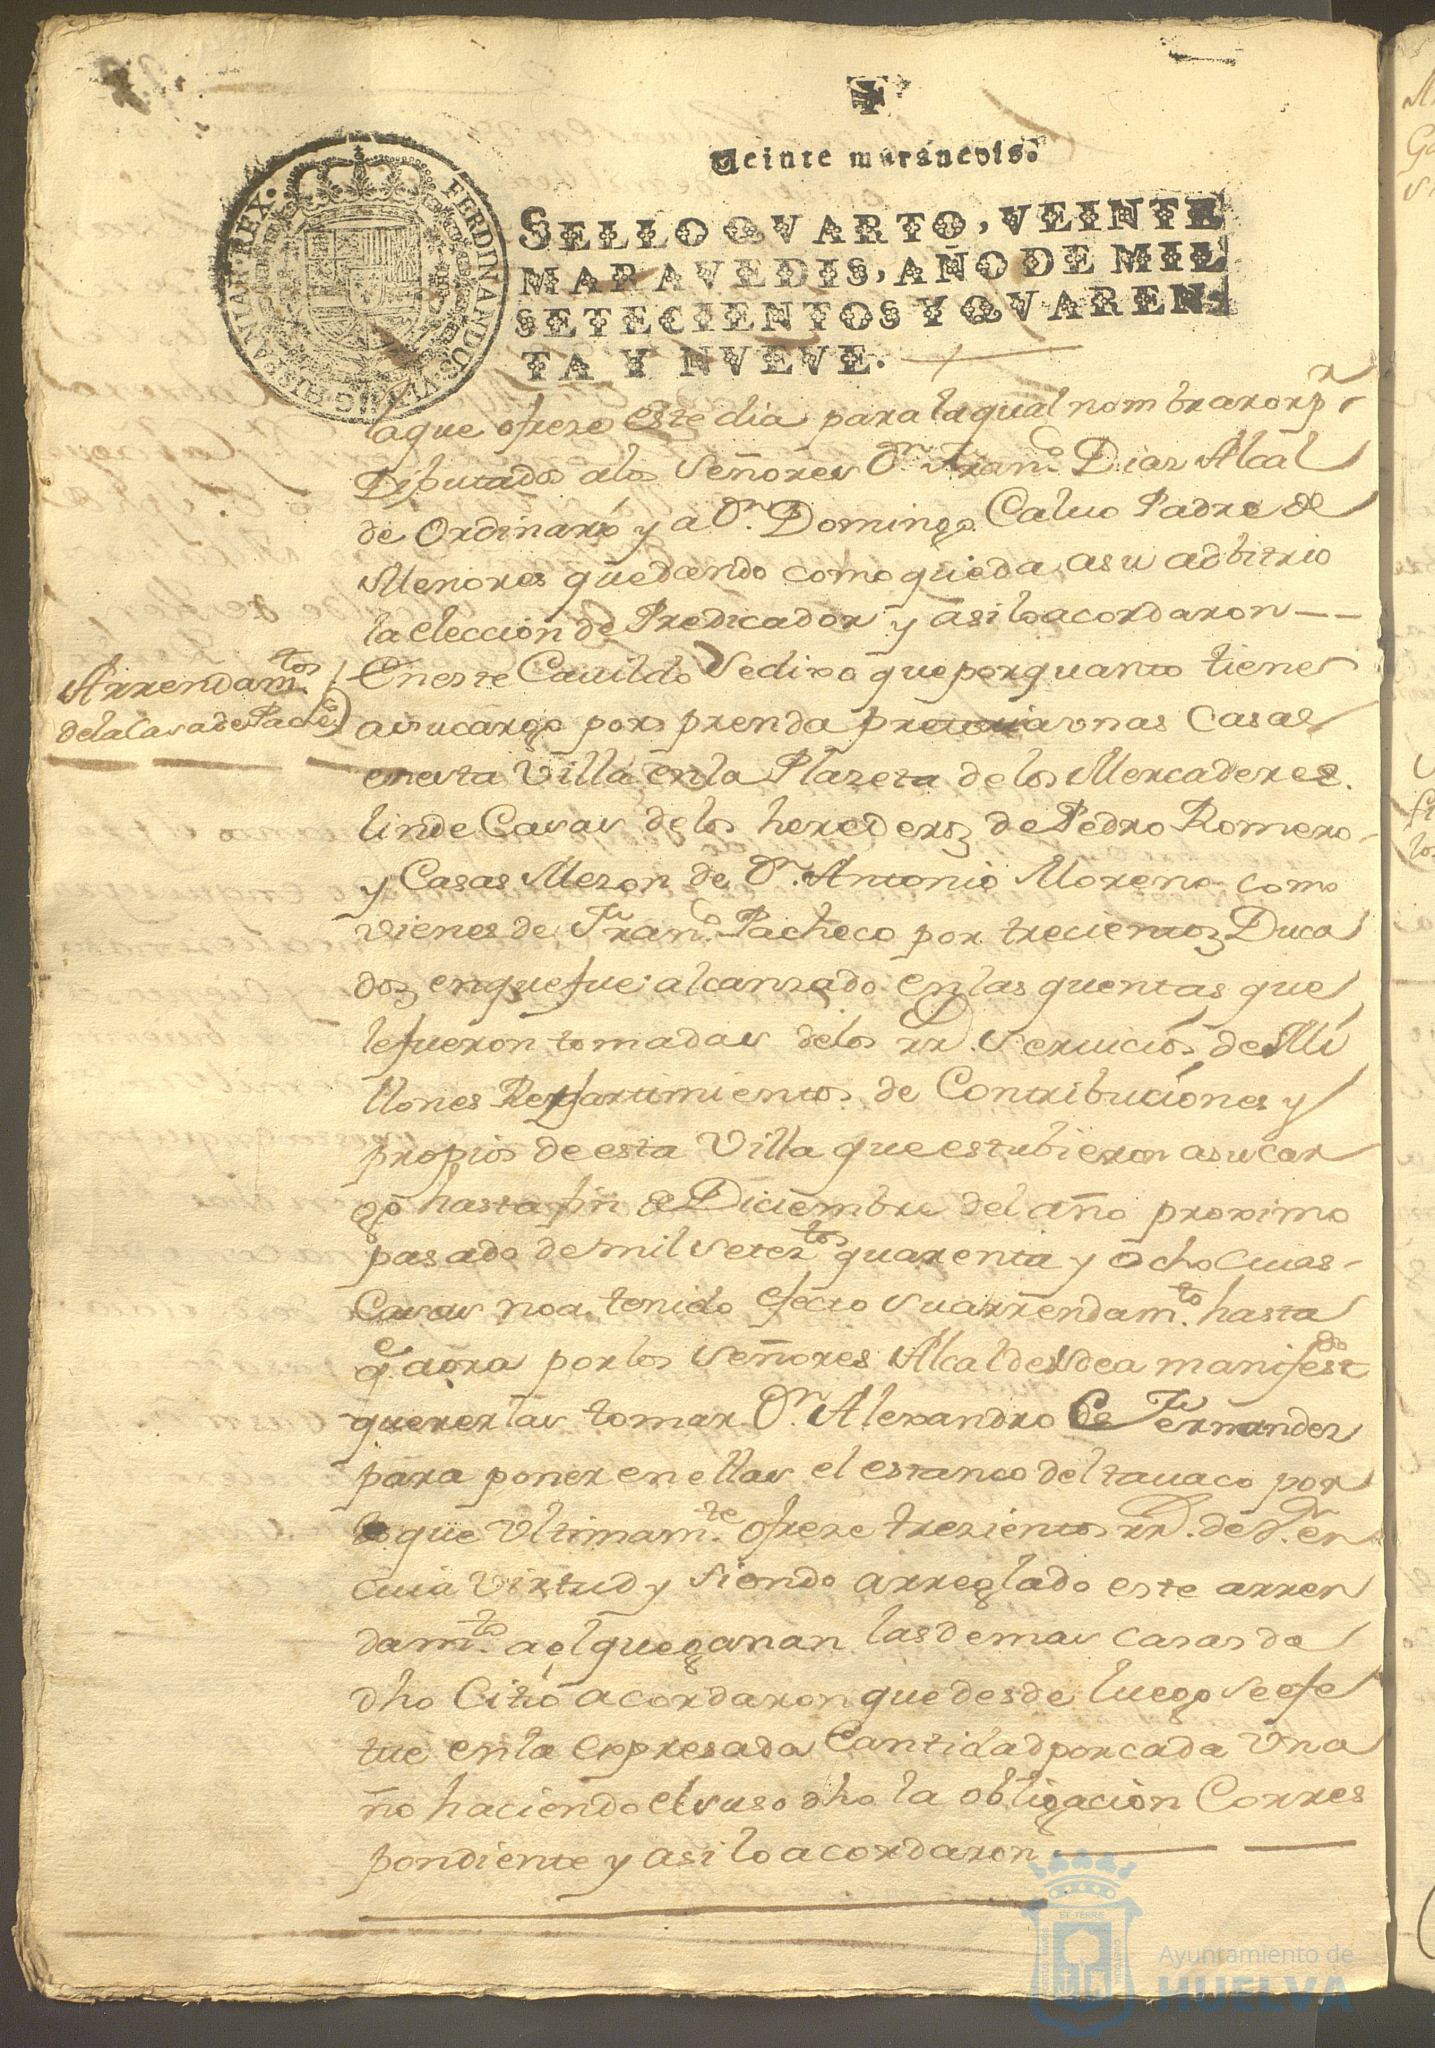 Veinte maravedis.
SELLO QVARTO, VEINTE
MARAVEDIS, AÑO DE MIL
SETECIENTOS Y QVAREN-
TA Y NVEVE.
FERDINANDUS·VI·D·G·HISPANIAR·REX·
laque ofreze este dia para laqual nombraron pr
Diputados alos Señores Dn Franco. Dias Alcal
de Ordinario y a Dn. Domingo Calvo Padre de
Menores quedando como queda asu adbitrio
la eleccion de Predicador y asi lo acordaron
Arrendamtos.
dela Casa de Pacheco
En este Cavildo Sedixo que por quanto tiene
asu cargo por prenda pretoria vnas Casas
enesta Villa en la Plazeta de los Mercaderes.
linde Casas de los herederos de Pedro Romero
y Casas Mezon de Dn. Antonio Moreno como
vienes de Franco. Pacheco por trecientos Duca
dos enque fue alcanzado en las quentas que
le fueron tomadas delos rrs. Servicios de Mi
llones Repartimientos de Contribuciones y
propios de esta Villa que estubieron asu car
go hasta fin de Diciembre del año proximo
pasado de mil seteztos quarenta y ocho cuias
Casas no a tenido efecto su arrendamto. hasta
qe aora por los Señores Alcaldes sea manifestdo
quererlas tomar Dn. Alexandro de Fernandez
para poner en ellas el estanco del tauaco por
lo que vltimamte. ofreze trezientos rrs. de Vn. en
cuia virtud y siendo arreglado este arren
damto. a el que ganan las demas casas de
dho Citio acordaron que desde luego se efe
tue en la expresada Cantidad por cada vn a
ño haciendo el suso dho la obligacion Corres
pondiente y asi lo acordaron
Ayuntamiento de
HUELVA